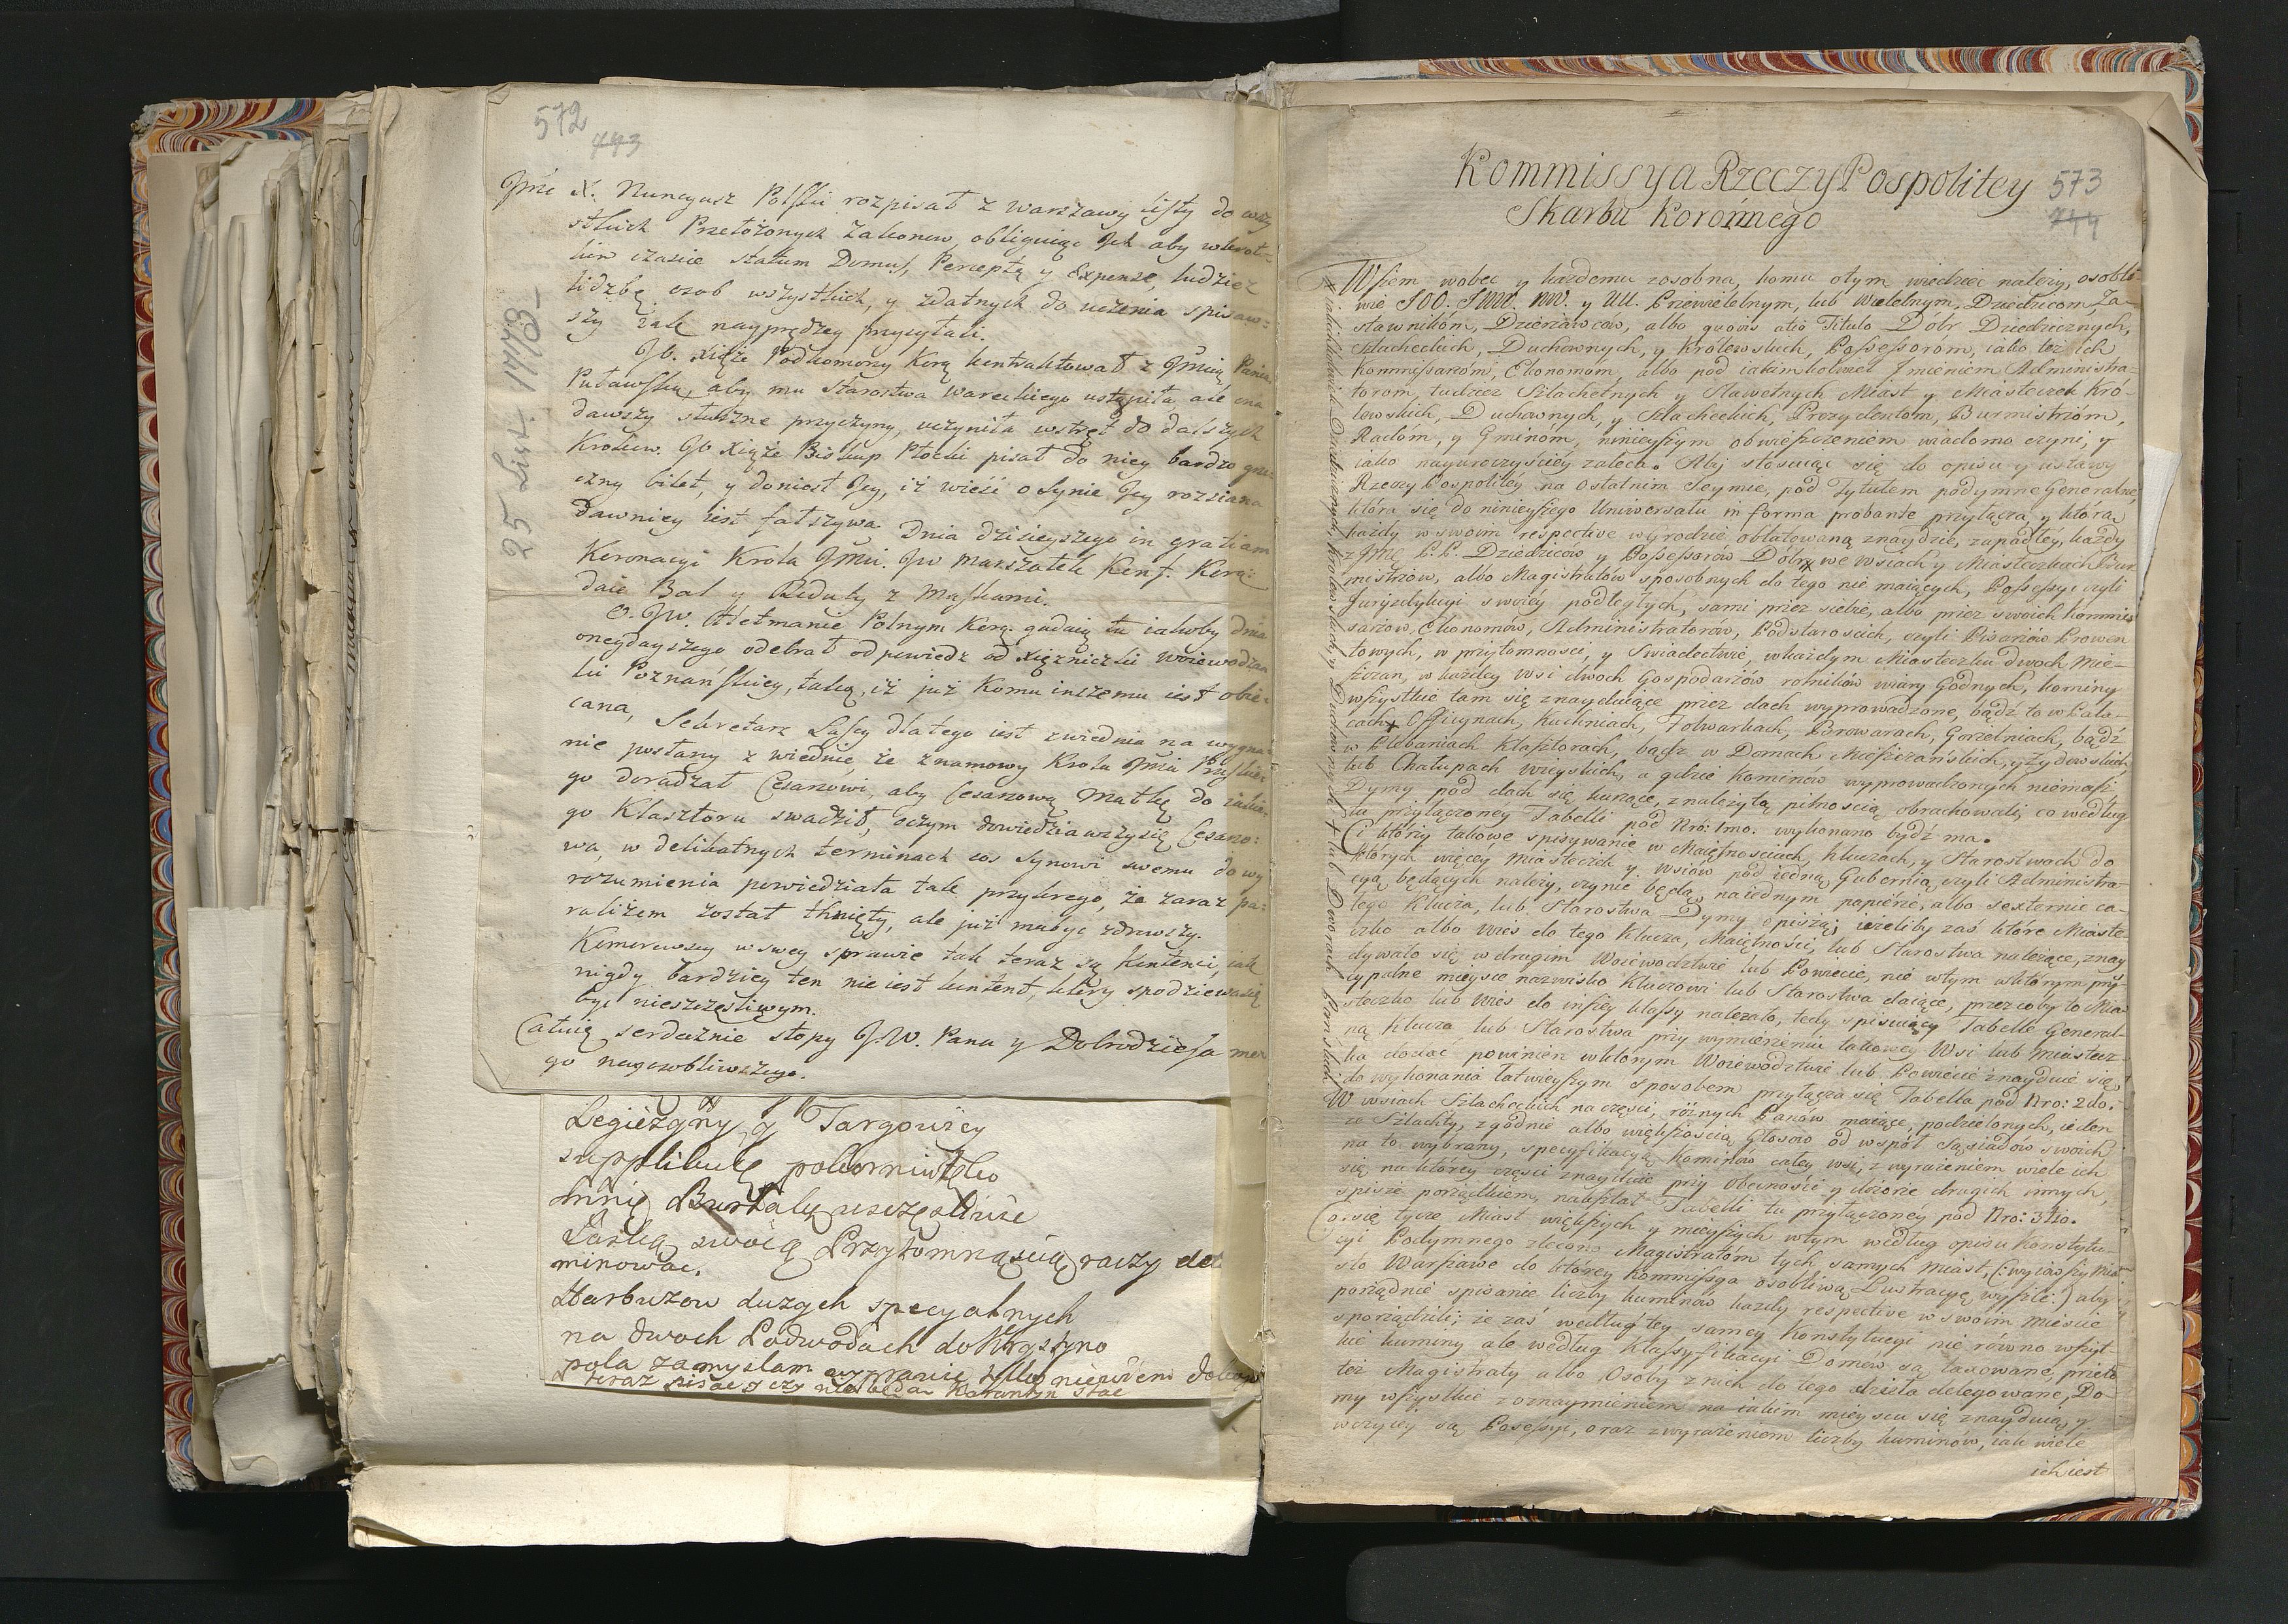 572
743
Jmć X. Nuncyusz Polski rozpisał z Warszawy listy do wszy
stkich Przełożonych Zakonow, obliguiąc Ich aby wkrot-
kim czasie statum Domus, Perceptę y Expensę, tudzież
liczbę osob wszystkich, y zdatnych do uczenia spisaw-
szy iak nayprędzey przysyłali.
JO. Xiąże Podkomorzy Korą kontraktował z Jmcią Panią
Puławską, aby mu Starostwa Wareckiego ustąpiła ale ona
dawszy słuszne przyczyny, uczyniła wstręt do dalszych
Krokow. JO Xiąże Biskup Płocki pisał do niey bardzo grze-
czny bilet, y doniosł Jey, iż wieść o Synie Jey rozsiana
dawniey iest fałszywa. Dnia dzisieyszego in gratiam
Koronacyi Krola Jmci. JW Marszałek Konf. Korą:
daie Bal y Reduty z Maskami.
O JW. Hetmanie Polnym Korą. gadaią tu iakoby dnia
onegdayszego odebrał odpowiedz od Xiężniczki Woiewodzan
ki Poznańskiey, taką, iż już Komu inszemu iest obie-
cana, Sekretarz Lascy dlatego iest z wiednia na wygna-
nie posłany z wiednia, że z namowy Krola Jmci Pruskie
go doradzał Cesarzowi, aby Cesarzową Matkę do iakie-
go Klasztoru swadził, oczym dowiedziawszy się Cesarzo:
wa, w delikatnych terminach cos Synowi swemu do wy
rozumienia powiedziała tak przykrego, że zaraz pa-
raliżem został tknięty, ale już ma byc zdrowszy.
Komorowscy w swey sprawie tak teraz są kontenci, iak
nigdy bardziey ten nie iest kontent, ktory spodziewa się
byc nieszczęśliwym.
Całuię serdecznie stopy J.W. Pana y Dobrodzieja me
go nayosobliwszego.
25 List. 1773
y Targowicy
supplikuię pokorniutko
Łaską swoią Przytomnąscią raczy det
minowac.
Harbuzow duzych specyalnych
na dwoch Podwodach do Krystyno
pola zamyslam
teraz pisac y czy nie będą Karantyn stac
573
744
Kommissya Rzeczy Pospolitey
Skarbu Koronnego
Wszem wobec y każdemu zosobna, komu otym wiedzieć należy, osobli-
wie JOO. JWW. WW. y UU. Przewielebnym, lub Wielebnym, Dziedzicom, Za-
stawnikóm, Dzierżawcóm, albo quovis alio Titulo Dóbr Dziedzicznych,
Szlacheckich, Duchownych, y Królewskich, Possessoróm, iako też ich
Kommissarzóm, Ekonomom, albo pod iakimkolwiek Jmieniem Administra-
torom, tudzież Szlachetnych y Sławetnych Miast y Miasteczek Kró-
lewskich, Duchownych, y Szlacheckich, Prezydentom, Burmistrzóm,
Radóm, y Gminóm, ninieyszym obwieszczeniem wiadomo czyni, y
iako nayuroczyściey zaleca. Aby stosuiąc się do opisu y ustawy
Rzeczy Pospolitey na ostatnim Seymie, pod Tytułem podymne Generalne,
która się do ninieyszego Uniwersału in forma probante przyłącza, y którą
każdy w swoim respective wgrodzie oblatowaną znaydzie, zapadłey, każdy
z Jmć P.P. Dziedziców y Possessorów Dóbr, we wsiach y Miasteczkach Bur
mistrzow, albo Magistratów sposobnych do tego nie maiących, Possessyi czyli
Juryzdykcyi swoiey podległych, sami przez siebie, albo przez swoich Kommis
sarzow, Ekonomów, Administratorów, Podstarościch, czyli Pisarzów Prowen
towych, w przytomności, y Swiadectwie, wkażdym Miasteczku dwoch Mie-
szczan, w każdey wsi dwoch Gospodarzów rolników wiary Godnych, kominy
wszystkie tam się znayduiące przez dach wyprowadzone, bądź to w Pała-
cach, Officynach, Kuchniach, Folwarkach, Browarach, Gorzelniach, bądź
w Plebaniach Klasztorach, bądź w Domach Mieszczańskich, y Żydowskich
lub Chałupach wieyskich, a gdzie kominów wyprowadzonych niemasz
Dymy pod dach się kurzące, z należytą pilnością obrachowali, co według
tu przyłączoney Tabelli pod Nro: 1mo. wykonano bydź ma.
Ci którzy takowe spisywanie w Maiętnościach, Kluczach, y Starostwach do
których więcey Miasteczek y wsiów pod iedną Gubernią, czyli Administra-
cyą będących należy, czynić będą, na iednym papierze, albo sexternie ca-
łego Klucza, lub Starostwa Dymy spiszą; ieżeliby zaś które Miaste-
czko albo wieś do tego Klucza, Maiętności, lub Starostwa należące, znay
dywało się w drugim Woiewodztwie lub Powiecie, nie wtym w którym pryn
cypalne mieysce nazwisko Kluczowi lub Starostwu daiące, przez coby to Mia-
steczko lub wieś do inszey klassy należało, tedy spisuiący Tabelle General-
ną Klucza lub Starostwa przy wymienieniu takowey Wsi lub Miastecz-
ka dodać powinien w którym Woiewodztwie lub Powiecie znayduie się,
do wykonania łatwieyszym sposobem przyłącza się Tabella pod Nro: 2do.
W wsiach Szlacheckich na części, różnych Panów maiące, podzielonych, ieden
ze Szlachty, zgodnie albo większością Głosow od współ Sąsiadów swoich
na to wybrany, specyfikacyą Kominów całey wsi, z wyrażeniem wiele ich
się na którey części znayduie przy obecności y dozorze drugich innych,
spisze porządkiem, nakształt Tabelli tu przyłączoney pod Nro: 3tio.
Co się tycze Miast większych y mieyszych wtym według opisu Konstytu-
cyi Podymnego zlecono Magistratóm tych samych Miast, (: wyiąwszy Mia
sto Warszawę do którey Kommissya osobliwą Lustracyą wyszle:) aby
porządnie spisanie liczby kominów każdy respective w swoim Mieście
sporządzili; że zaś według tey samey Konstytucyi nie równo wszyt-
kie kominy ale według Klassyfikacyi Domów są taxowane, przeto
też Magistraty albo Osoby z nich do tego dzieła delegowane, Do-
my wszystkie z oznaymieniem na iakim mieyscu się znayduią, y
w czyiey są Possessyi, oraz z wyrażeniem liczby kominów, iak wiele
ich iest